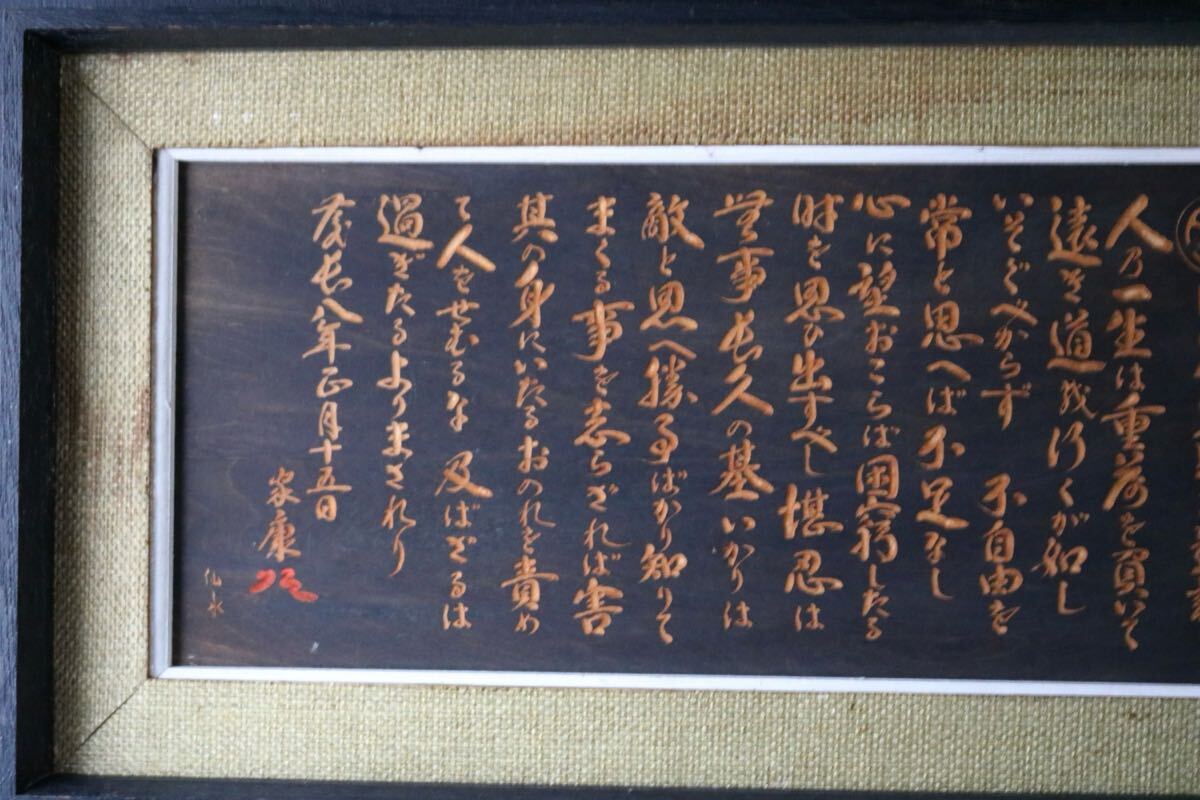 人の一生は重荷を負いて
遠き道を行くが如し
いそぐべからず 不自由を
常と思へば不足なし
心に望おこらば困窮したる
時を思ひ出すべし堪忍は
無事長久の基いかりは
敵と思へ勝事ばかり知りて
まくる事を志らざれば害
其の身にいたるおのれを責め
て人をせむるな 及ばざるは
過ぎたるよりまされり
慶長八年正月十五日
家康